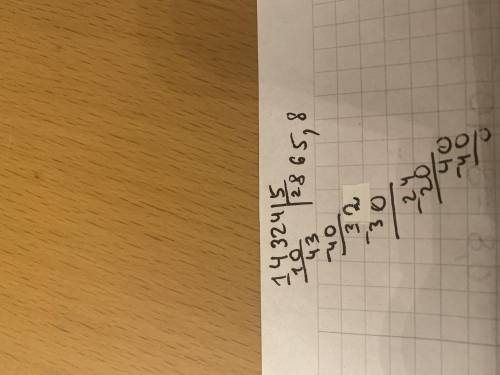 14324|5
-10 |2865,8
43
-40
32
-30
24
-20
40
-40
0